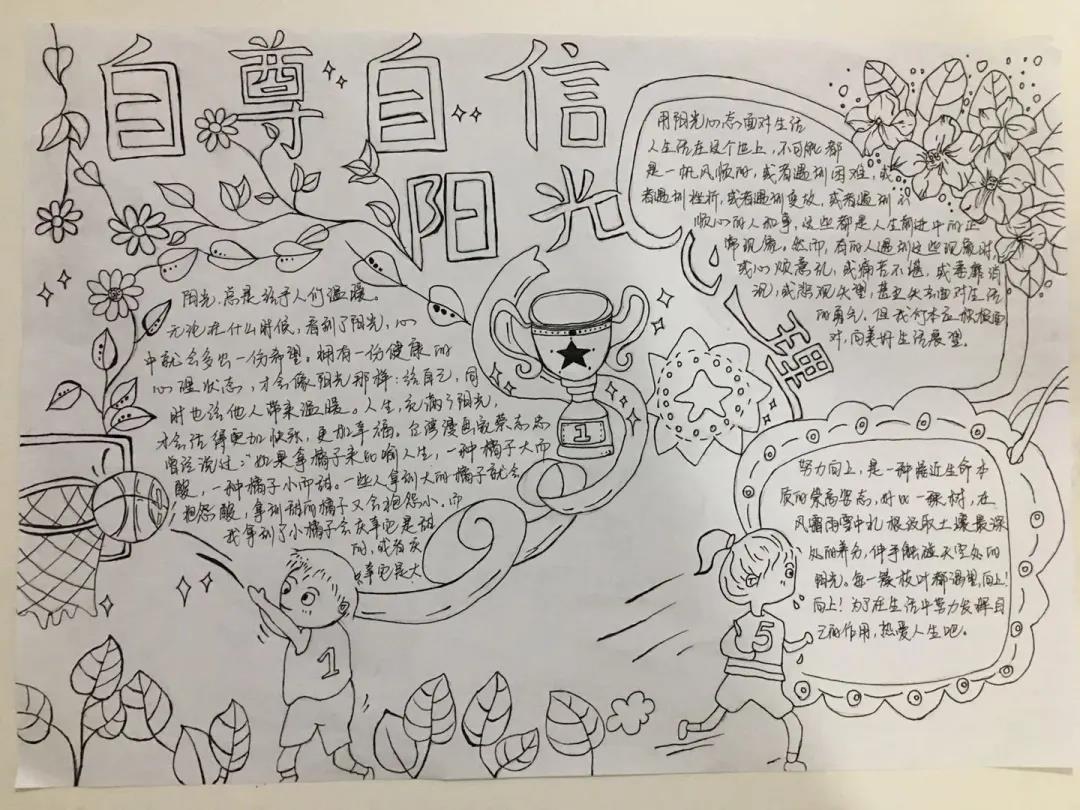 自尊自信
阳光
心理
阳光,总是给予人们温暖。
无论在什么时候,看到了阳光,心
中就会多出一份希望。拥有一份健康的
心理状态,才会像阳光那样:给自己,同
时也给他人带来温暖。人生,充满了阳光,
才会活得更加快乐,更加幸福。台湾漫画家蔡志忠
曾经说过:"如果拿橘子来比喻人生,一种橘子大而
酸,一种橘子小而甜。一些人拿到大的橘子就会
抱怨酸,拿到甜的橘子又会抱怨小。而
我拿到了小橘子会庆幸它是甜
的,或者庆
幸它是大
1
1
用阳光心态面对生活
人生活在这个世上,不可能都
是一帆风顺的,或者遇到困难,或
者遇到挫折,或者遇到变故,或者遇到不
顺心的人和事,这些都是人生前进中的正
常现象。然而,有的人遇到这些现象时,
或心烦意乱,或痛苦不堪,或萎靡消
沉,或悲观失望,甚至失去面对生活
的勇气。但我们本应积极面
对,向美好生活展望。
努力向上,是一种接近生命本
质的崇高姿态,好比一棵树,在
风霜雨雪中扎根汲取土壤最深
处的养分,伸手触碰天空处的
阳光。每一簇枝叶都渴望,向上!
向上!为了在生活中努力发挥自
己的作用,热爱人生吧。
5